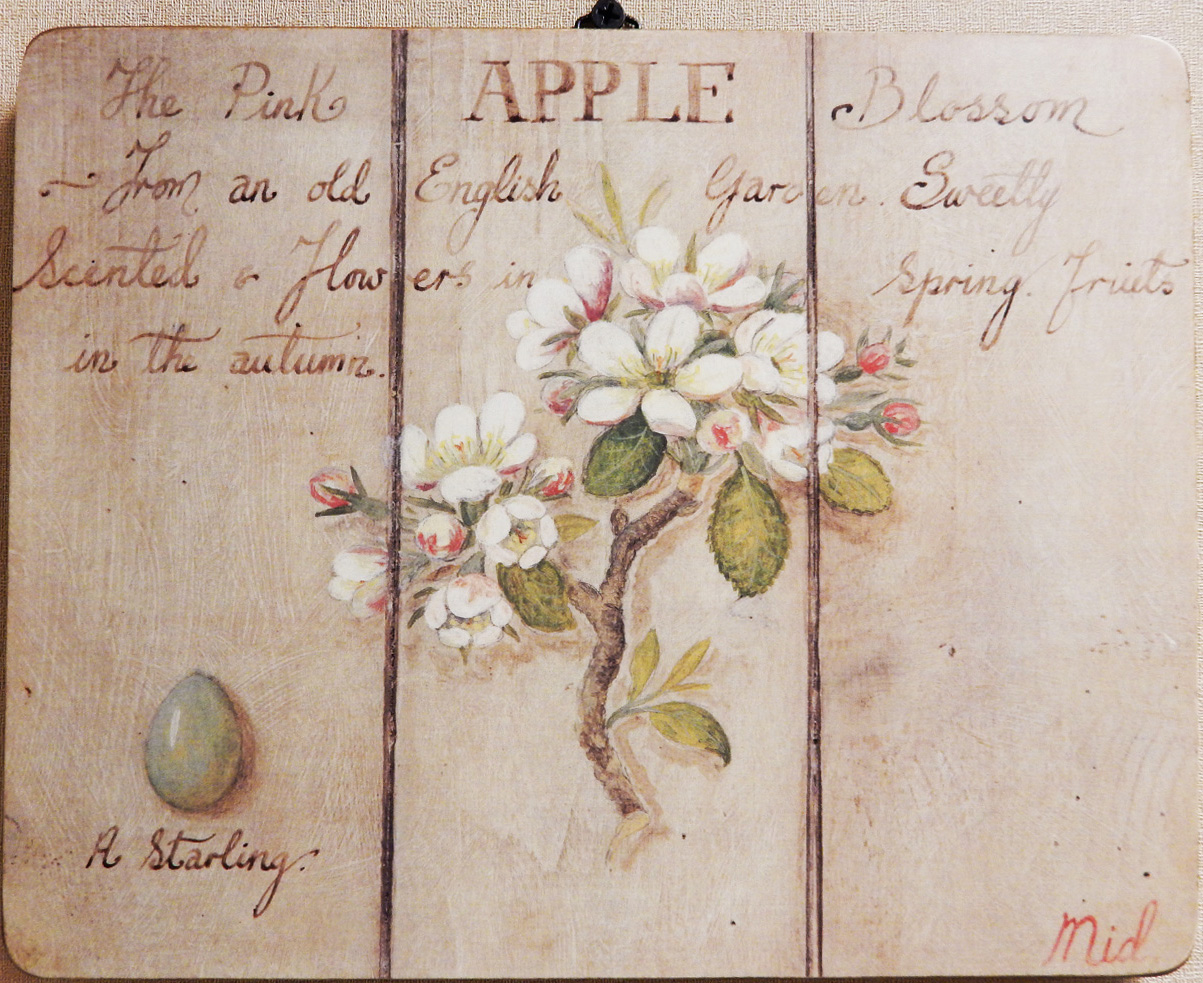 The Pink APPLE Blossom
~ From an old English Garden. Sweetly
Scented & Flowers in Spring. Fruits
in the autumn.
A Starling.
Mid